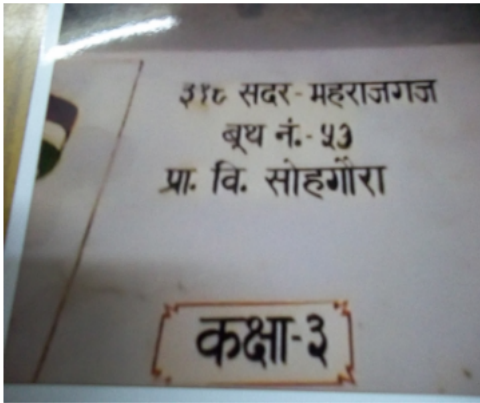 ३१८ सदर-महराजगज
बूथ नं.-५३
प्रा. वि. सोहगौरा
कक्षा-३